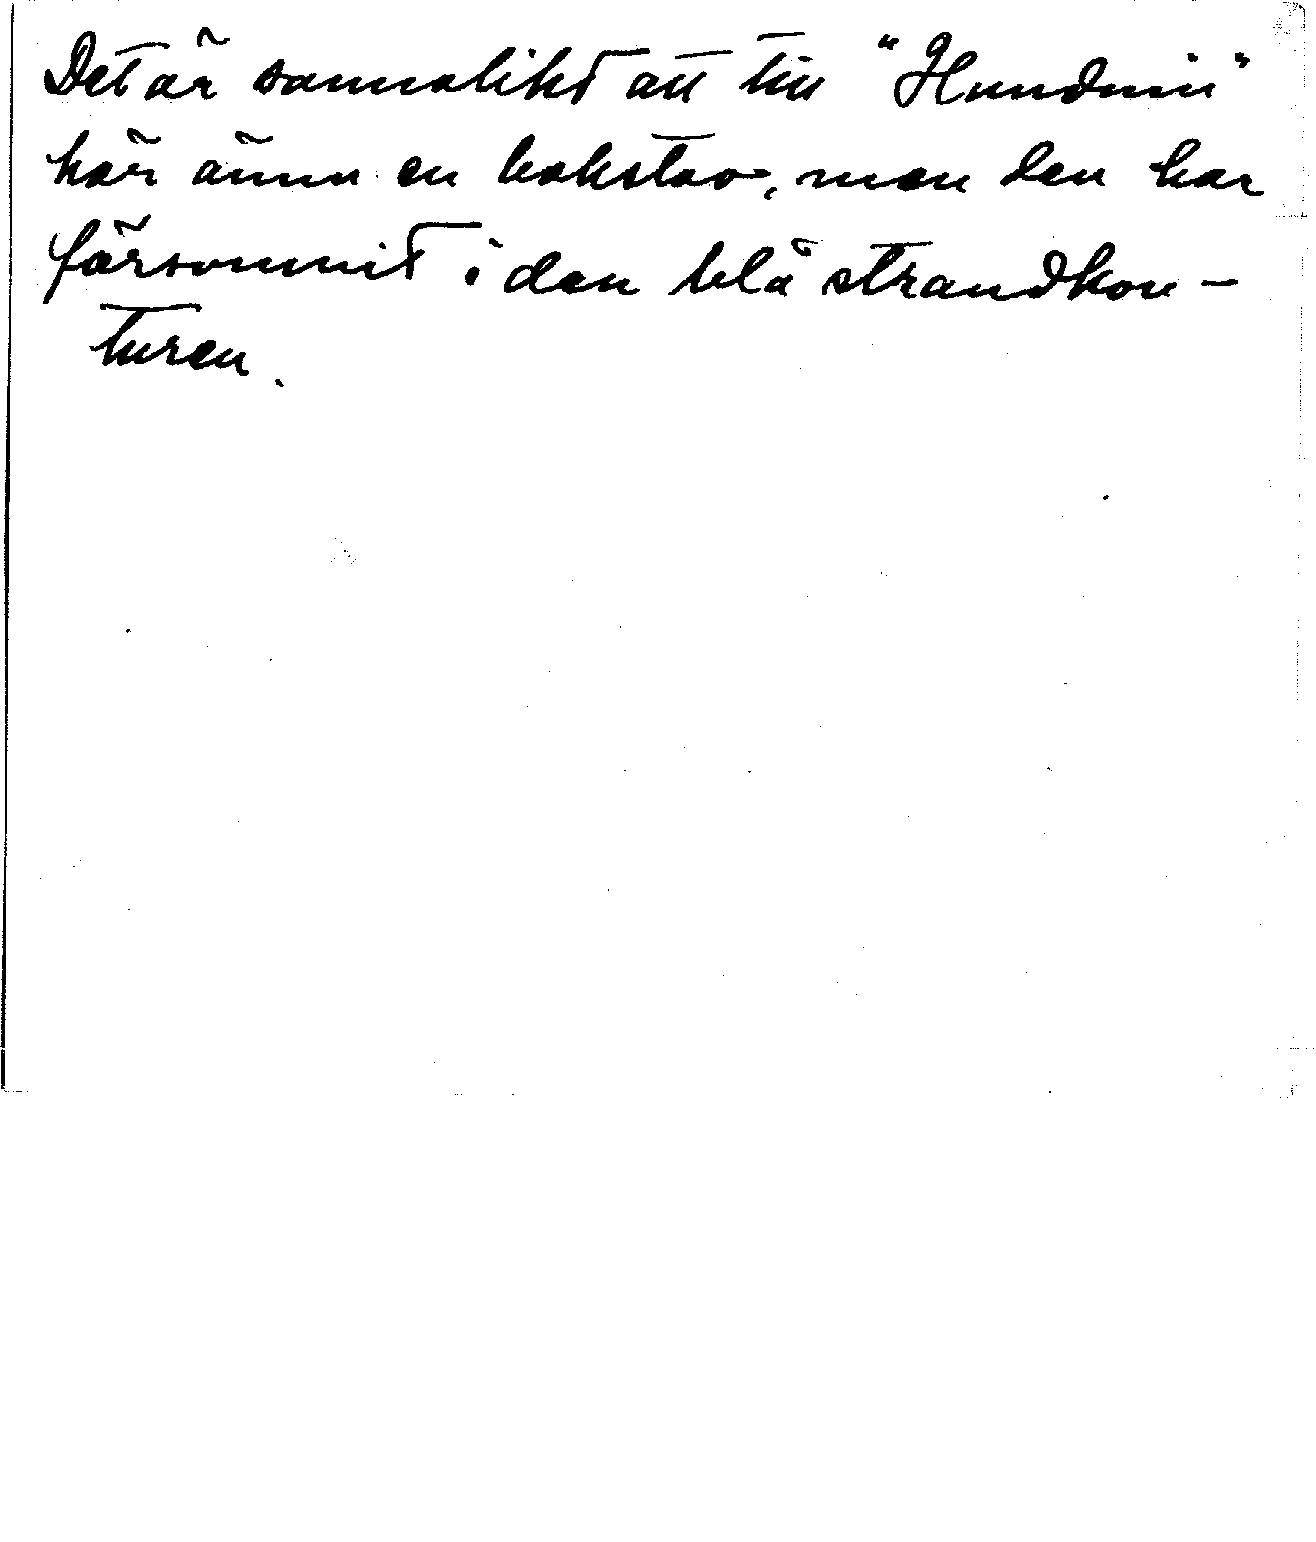 Det är sannolikt att till "Hundmii"
hör ännu en bokstav, men den har
försvunnit i den blå strandkon-
turen.